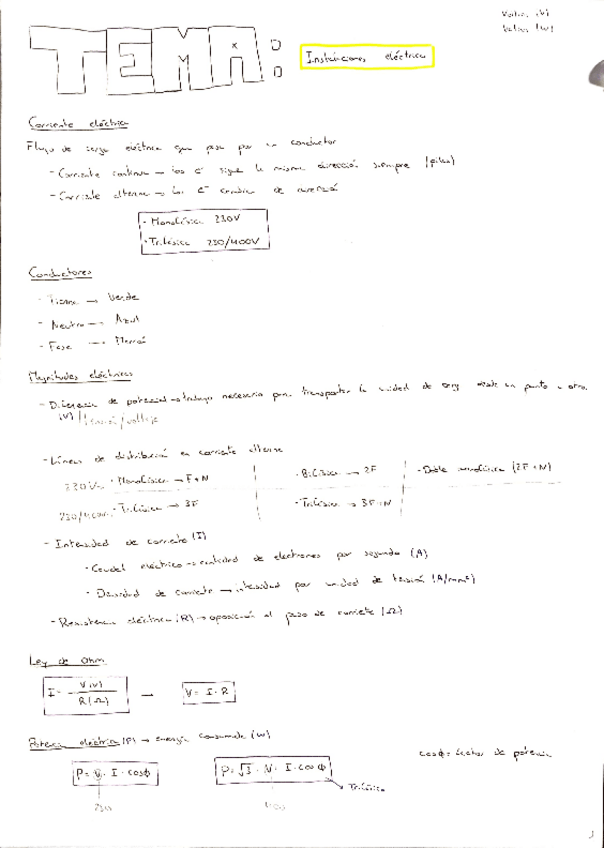 Voltios (V)
Vatios (W)
TEMA:
Instalaciones eléctricas
Corriente eléctrica
Flujo de carga eléctrica que pasa por un conductor
- Corriente continua → los e⁻ sigue la misma dirección siempre (pilas)
- Corriente alterna → los e⁻ cambia de
· Monofásica 230V
· Trifásica 230/400V
Conductores
- Tierra → Verde
- Neutro → Azul
- Fase → Marrón
Magnitudes eléctricas
- Diferencia de potencial → trabajo necesario para transportar la unidad de carga desde un punto a otro.
(V) / tensión / voltaje
- Líneas de distribución en corriente alterna
230V · Monofásica → F+N · Bifásica → 2F · Doble monofásica (2F+N)
230/400V · Trifásica → 3F · Trifásica → 3F+N
- Intensidad de corriente (I)
· Caudal eléctrico → cantidad de electrones por segundo (A)
· Densidad de corriente → intensidad por unidad de (A/mm²)
- Resistencia eléctrica (R) → oposición al paso de corriente (Ω)
Ley de Ohm
I = V(V) / R(Ω) → V = I · R
Potencia eléctrica (P) → energía consumida (W)
cosϕ = factor de potencia
P = V · I · cosϕ P = √3 · V · I · cosϕ
Trifásica
230 400